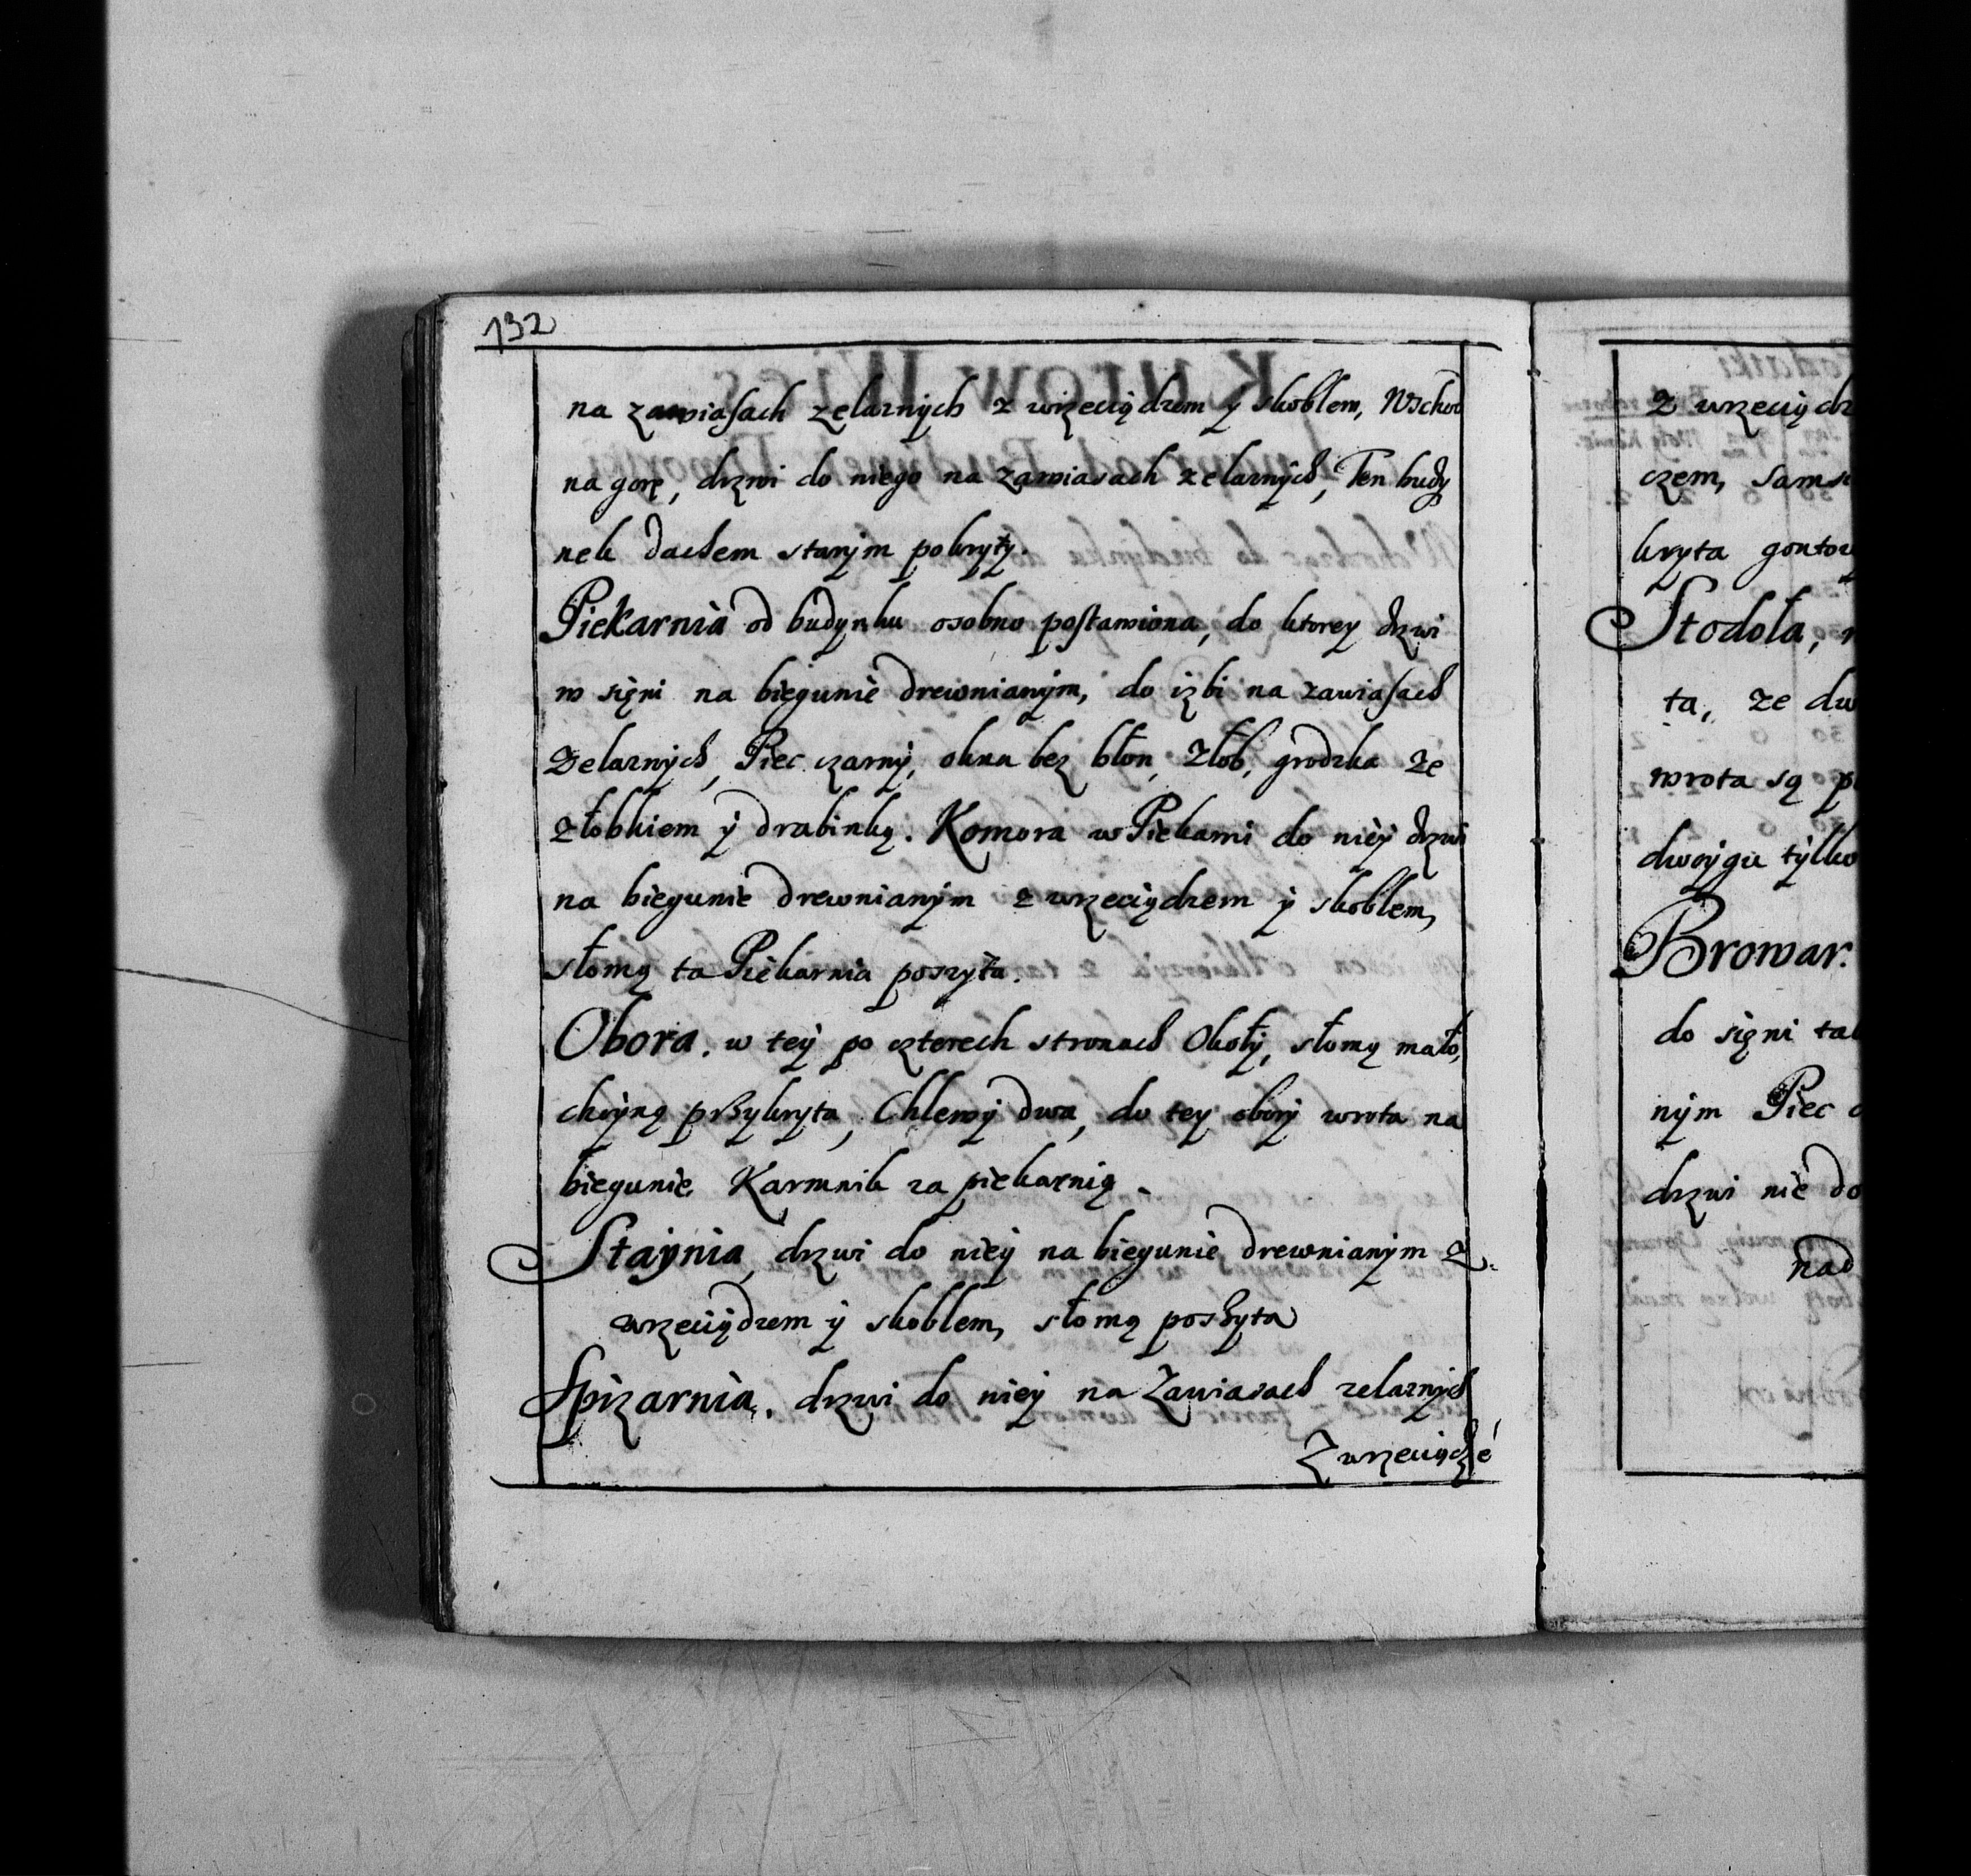 132
na zawiasach zelaznych z wrzeciądzem y skoblem, Wschod
na gorę, drzwi do niego na zawiasach zelaznych, Ten budy
nek dachem starym pokryty.
Piekarnia od budynku osobno postawiona, do ktorey drzwi
w sięni na biegunie drewnianym, do izbi na zawiasach
Zelaznych, Piec czarny, okna bez błon, Złob, grodzka ze
złobkiem y drabinką. Komora w Piekarni do niey drzwi
na biegunie drewnianym z wrzeciądzem y skoblem,
słomą ta Piekarnia poszyta.
Obora. w tey po czterech stronach Okoły, słomą mało,
chrying przykryta, Chlewy dwa, do tey obory wrota na
biegunie. Karmnik za piekarnią.
Staynia, drzwi do niey na biegunie drewnianym z
wrzeciądzem y skoblem, słomą poszyta
Spizarnia. drzwi do niey na Zawiasach zelaznych
Z wrzeciądzé
z wrzeciądz
czem, sams
kryta gontow
Stodoła,
ta, ze dw
wrota są p
dwoygu tylko
Browar.
do sięni tak
nym Piec
drzwi nie do
nad